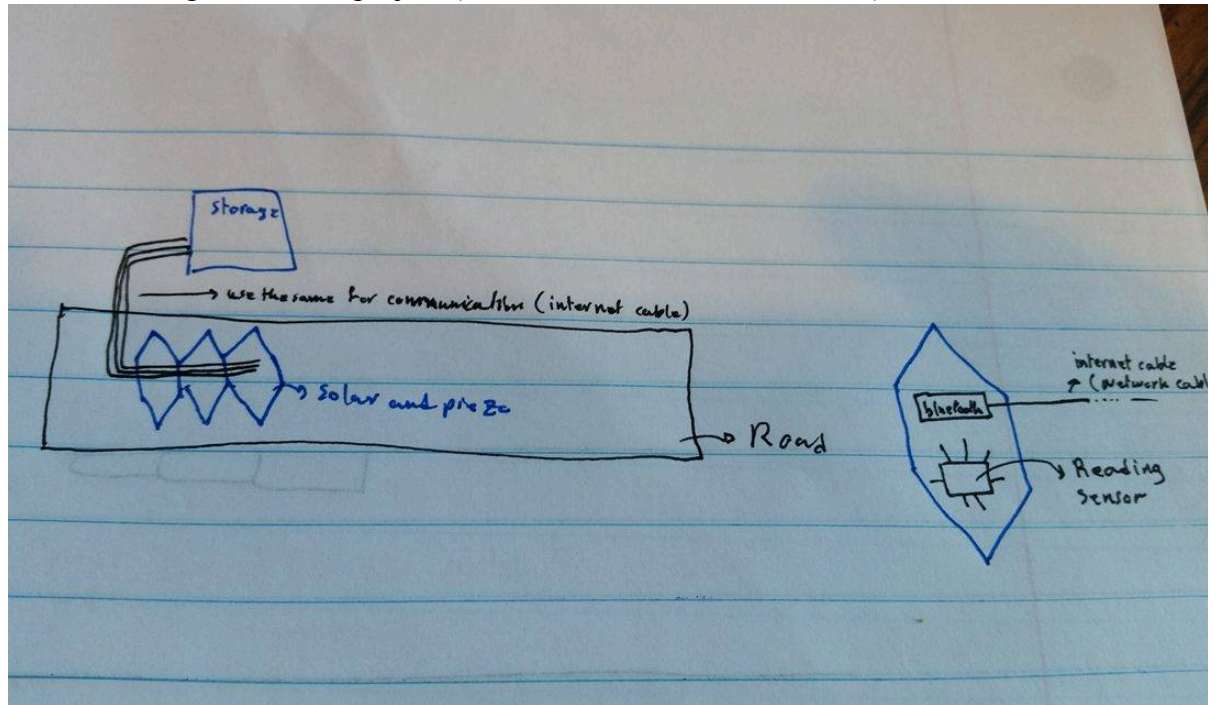 Storage
use the same for communication (internet cable)
Solar and piezo
Road
internet cable
(network cabl
bluetooth
Reading
Sensor